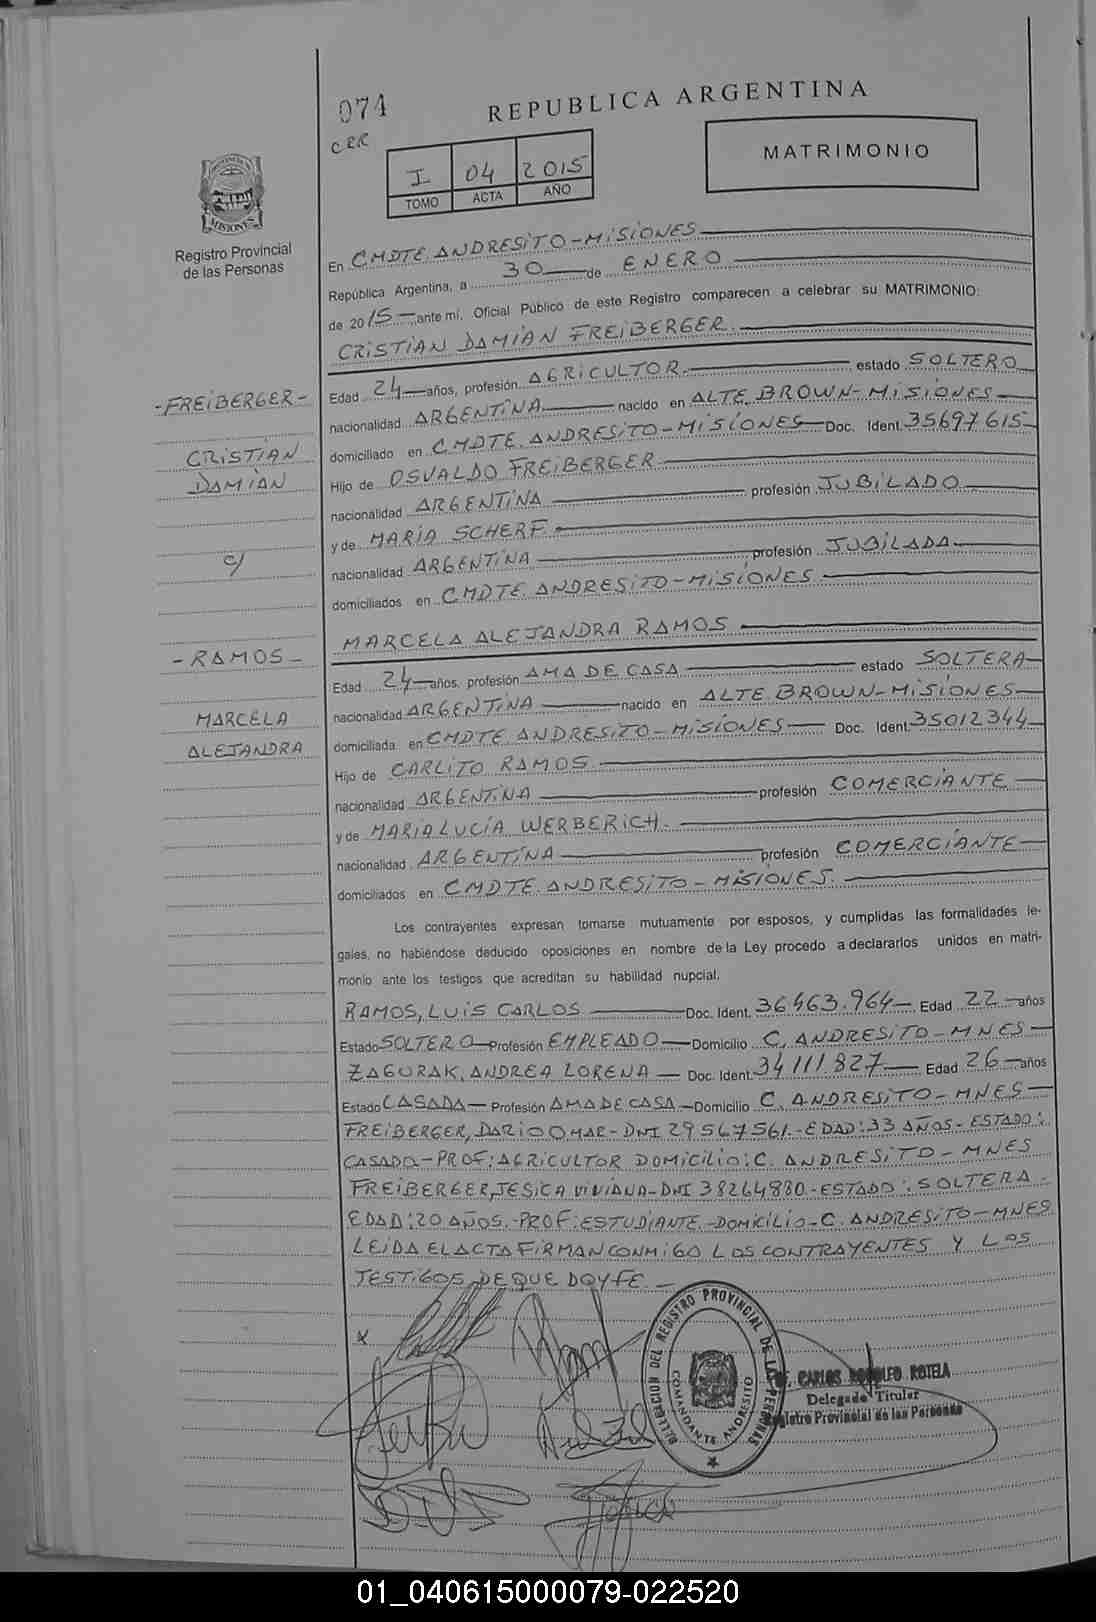 074
REPUBLICA ARGENTINA
CER
I 04 2015
TOMO ACTA AÑO
MATRIMONIO
PROVINCIA DE
MISIONES
Registro Provincial
de las Personas
En CMDTE. ANDRESITO-MISIONES
República Argentina, a 30 de ENERO
de 2015 ante mí, Oficial Público de este Registro comparecen a celebrar su MATRIMONIO:
CRISTIAN DAMIÁN FREIBERGER.
Edad 24 años, profesión AGRICULTOR. estado SOLTERO
nacionalidad ARGENTINA nacido en ALTE. BROWN-MISIONES
domiciliado en CMDTE. ANDRESITO-MISIONES Doc. Ident. 35697615
Hijo de OSVALDO FREIBERGER
nacionalidad ARGENTINA profesión JUBILADO
y de MARÍA SCHERF.
nacionalidad ARGENTINA profesión JUBILADA.
domiciliados en CMDTE. ANDRESITO-MISIONES
-FREIBERGER-
CRISTIAN
DAMIÁN
c/
-RAMOS-
MARCELA
ALEJANDRA
MARCELA ALEJANDRA RAMOS
Edad 24 años, profesión AMA DE CASA estado SOLTERA
nacionalidad ARGENTINA nacido en ALTE BROWN-MISIONES
domiciliada en CMDTE ANDRESITO-MISIONES Doc. Ident. 35012344
Hijo de CARLITO RAMOS.
nacionalidad ARGENTINA profesión COMERCIANTE
y de MARIA LUCÍA WERBERICH.
nacionalidad ARGENTINA profesión COMERCIANTE
domiciliados en CMDTE. ANDRESITO-MISIONES.
Los contrayentes expresan tomarse mutuamente por esposos, y cumplidas las formalidades le-
gales, no habiéndose deducido oposiciones en nombre de la Ley procedo a declararlos unidos en matri-
monio ante los testigos que acreditan su habilidad nupcial.
RAMOS, LUIS CARLOS Doc. Ident. 36463.964 Edad 22 años
Estado SOLTERO Profesión EMPLEADO Domicilio C. ANDRESITO-MNES
ZAGURAK, ANDREA LORENA Doc. Ident. 34111827 Edad 26 años
Estado CASADA Profesión AMA DE CASA Domicilio C. ANDRESITO-MNES
FREIBERGER, DARIO OMAR-DNI 29567561.-EDAD: 33 AÑOS-ESTADO:
CASADO-PROF: AGRICULTOR DOMICILIO: C. ANDRESITO-MNES
FREIBERGER, JESICA VIVIANA-DNI 38264880-ESTADO: SOLTERA-
EDAD: 20 AÑOS.-PROF: ESTUDIANTE.-DOMICILIO-C. ANDRESITO-MNES
LEIDA EL ACTA FIRMAN CONMIGO LOS CONTRAYENTES Y LOS
TESTIGOS, DE QUE DOY FE.-
x
DELEGACION DEL REGISTRO PROVINCIAL DE LAS PERSONAS
COMANDANTE ANDRESITO
CARLOS RODOLFO ROTELA
Delegado Titular
Registro Provincial de las Personas
01_040615000079-022520